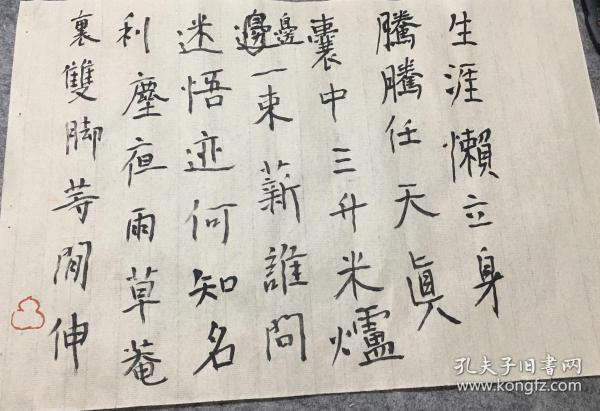 生涯懶立身
騰騰任天真
囊中三升米爐
邊邊一束薪誰問
迷悟迹何知名
利塵夜雨草菴
裏雙脚等閒伸
孔夫子旧书网
www.kongfz.com